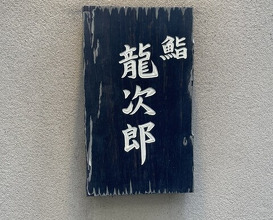 鮨
龍次郎